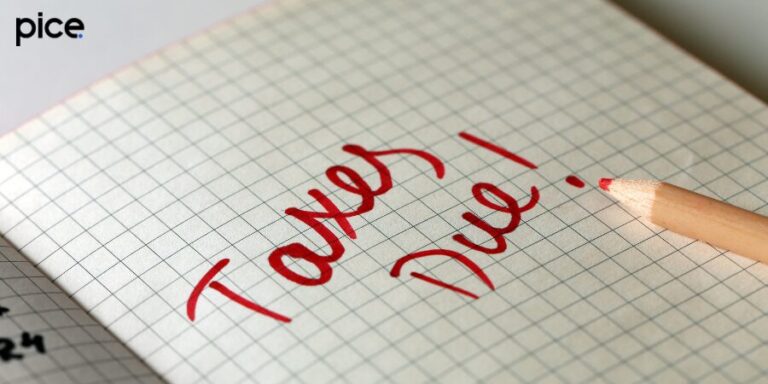 pice.
Taxes
Due!
24